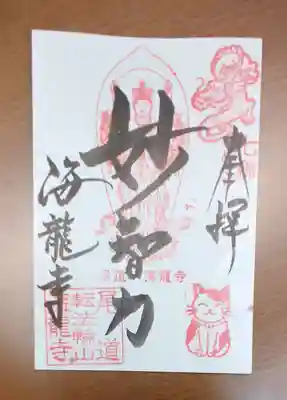 奉拝
妙智力
海龍寺
尾道
転法輪山
海龍寺